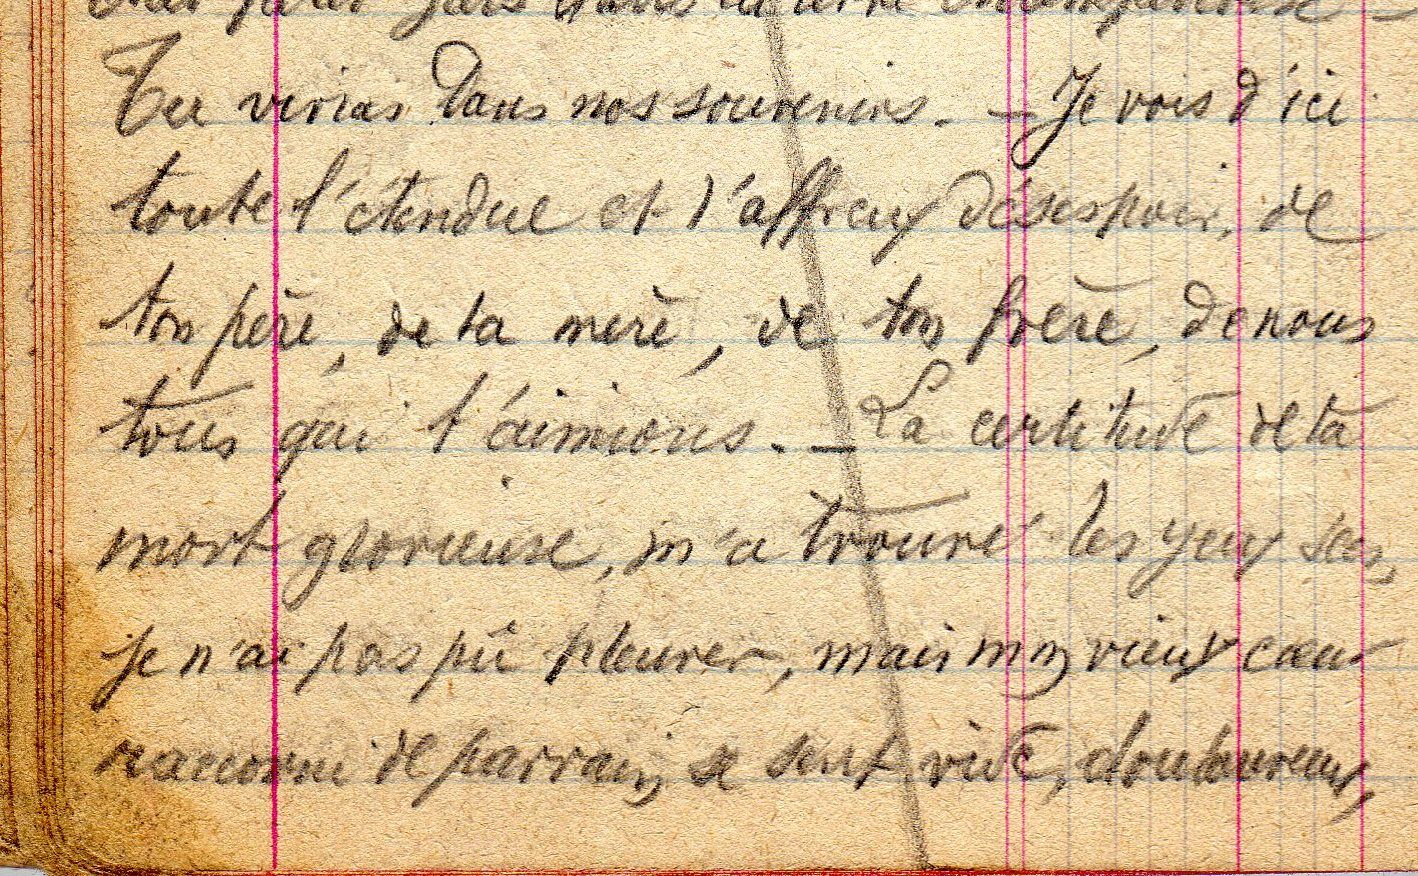 dans la terre
Tu vivras dans nos souvenirs. - Je vois d'ici
toute l'étendue et l'affreux désespoir, de
ton père, de ta mère, de ton frère, de nous
tous qui t'aimions. - La certitude de ta
mort glorieuse, m'a trouvé les yeux secs,
je n'ai pas pû pleurer, mais mon vieux cœur
de parrain, se sent vide, douloureux,